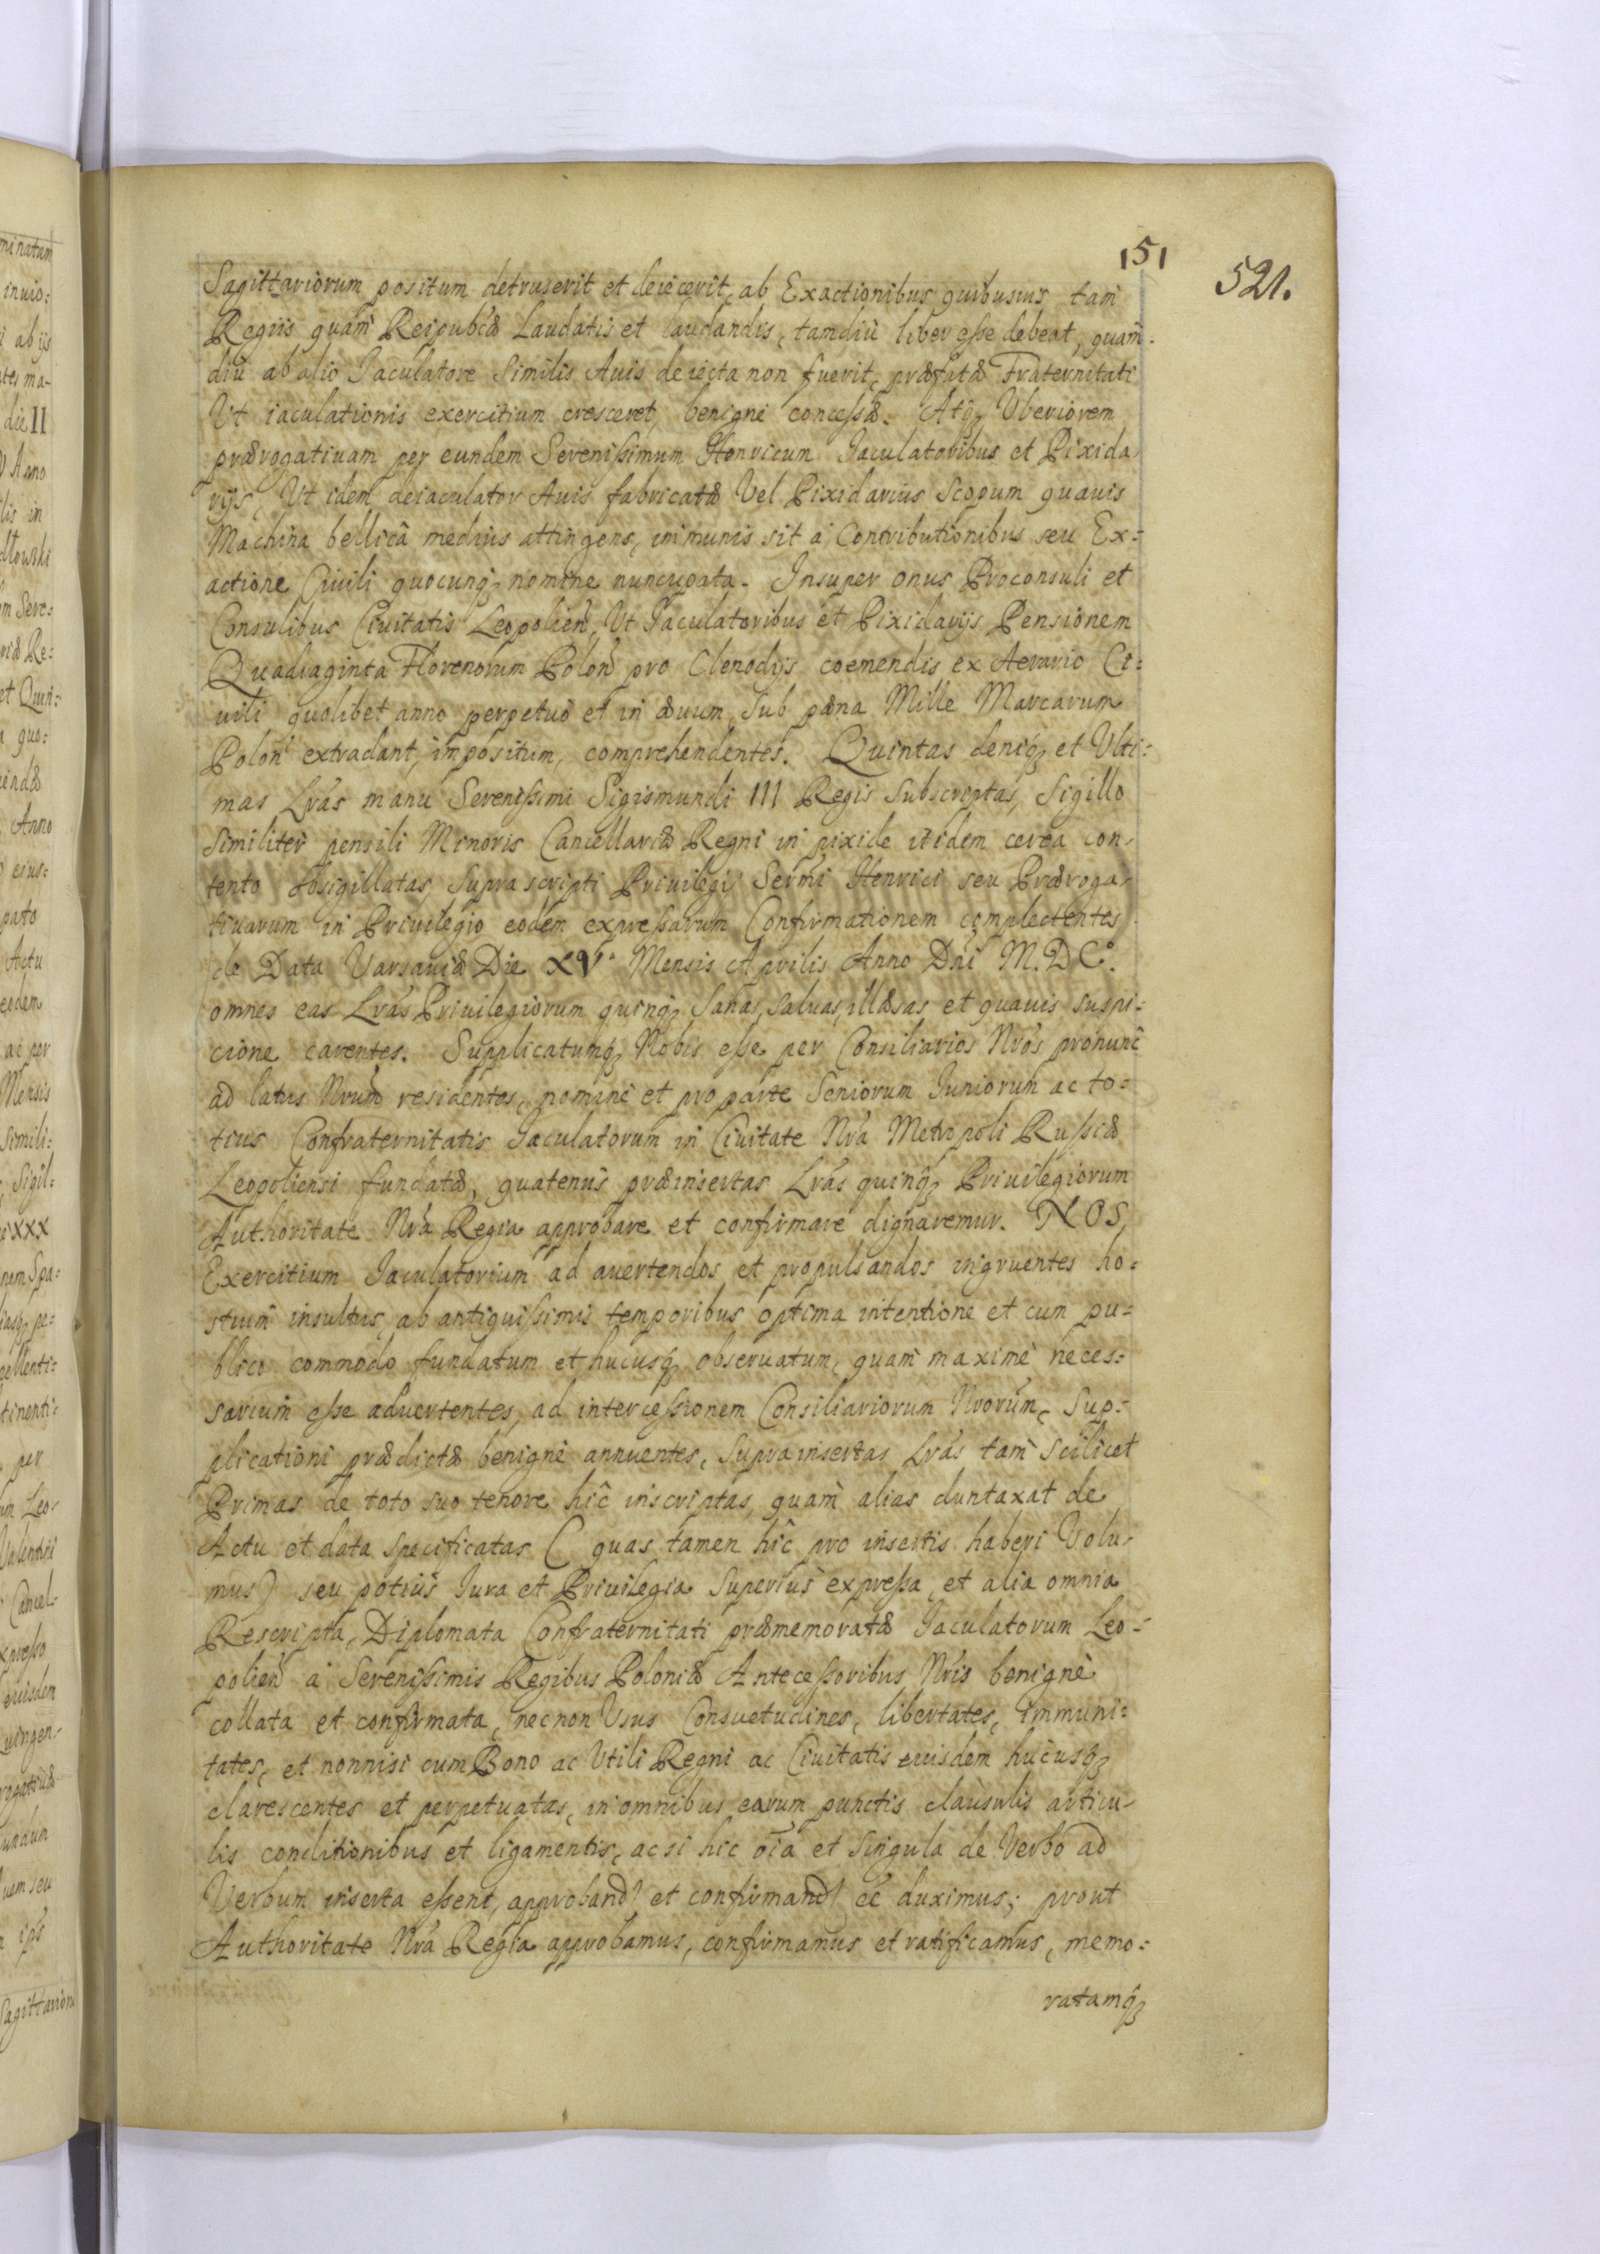 151
521.
Sagittariorum positum detruserit et deiecerit, ab Exactionibus quibusuis tam
Regiis quam Reipubcæ Laudatis et laudandis, tamdiù liber esse debeat, quam-
diu ab alio Jaculatore Similis Auis deiecta non fuerit, præfatæ Fraternitati
Ut iaculationis exercitium cresceret, benignè concessæ. Atq3 Uberiorem
prærogatiuam per eundem Serenissimum Henricum Jaculatoribus et Pixida-
rijs, Ut idem deiaculator Auis fabricatæ Vel Pixidarius Scopum quauis
Machina bellicâ medius attingens, immunis sit à Contributionibus seu Ex=
actione Ciuili quocunq3 nomine nuncupata. Insuper onus Proconsuli et
Consulibus Ciuitatis Leopolien, Ut Jaculatoribus et Pixidarijs Pensionem
Quadraginta Florenorum Polon pro Clenodijs coemendis ex Aerario Ci=
uili quolibet anno perpetuò et in æuum, Sub pæna Mille Marcarum
Polon extradant, impositum, comprehendentes. Quintas deniq3 et Ulti=
mas Lras manu Serenissimi Sigismundi III Regis Subscriptas, Sigillo
Similiter pensili Minoris Cancellariæ Regni in pixide itidem cerea con-
tento obsigillatas, Suprascripti Privilegij Sermi Henrici seu Præroga-
tiuarum in Priuilegio eodem expressarum Confirmationem complectentes
de Data Varsauiæ Die XV. Mensis Aprilis Anno Dni M.DC.
omnes eas Lras Priuilegiorum quinq3 Sanas, Saluas, illæsas et quauis suspi=
cione carentes. Supplicatumq3 Nobis esse per Consiliarios Nros pronunc
ad latus Nrum residentes, nomine et pro parte Seniorum Juniorum ac to=
tius Confraternitatis Jaculatorum in Ciuitate Nra Metropoli Russiæ
Leopoliensi fundatæ, quatenus præinsertas Lras quinq3 Priuilegiorum
Authoritate Nra Regia approbare et confirmare dignaremur. NOS
Exercitium Jaculatorium ad auertendos et propulsandos ingruentes ho=
stium insultus, ab antiquissimis temporibus optima intentione et cum pu=
blico commodo fundatum et hucusq3 obseruatum, quam maximè neces=
sarium esse aduertentes, ad intercessionem Consiliariorum Nrorum, Sup=
plicationi prædictæ benignè annuentes, Suprainsertas Lras tam Scilicet
Primas de toto suo tenore hic inscriptas, quam alias duntaxat de
Actu et data Specificatas ( quas tamen hic pro insertis haberi Volu-
mus) seu potius Jura et Priuilegia Superius expressa, et alia omnia
Rescripta, Diplomata Confraternitati præmemoratæ Jaculatorum Leo=
polien à Serenissimis Regibus Poloniæ Antecessoribus Nris benignè
collata et confirmata, necnon Usus Consuetudines, libertates, immuni=
tates, et nonnisi cum Bono ac Utili Regni ac Ciuitatis eiusdem hucusq3
clarescentes et perpetuatas, in omnibus earum punctis clausulis articu-
lis conditionibus et ligamentis, ac si hic oia et Singula de Verbo ad
Verbum inserta essent, approband et confirmand ee duximus; prout
Authoritate Nra Regia approbamus, confirmamus et ratificamus, memo=
ratamq3